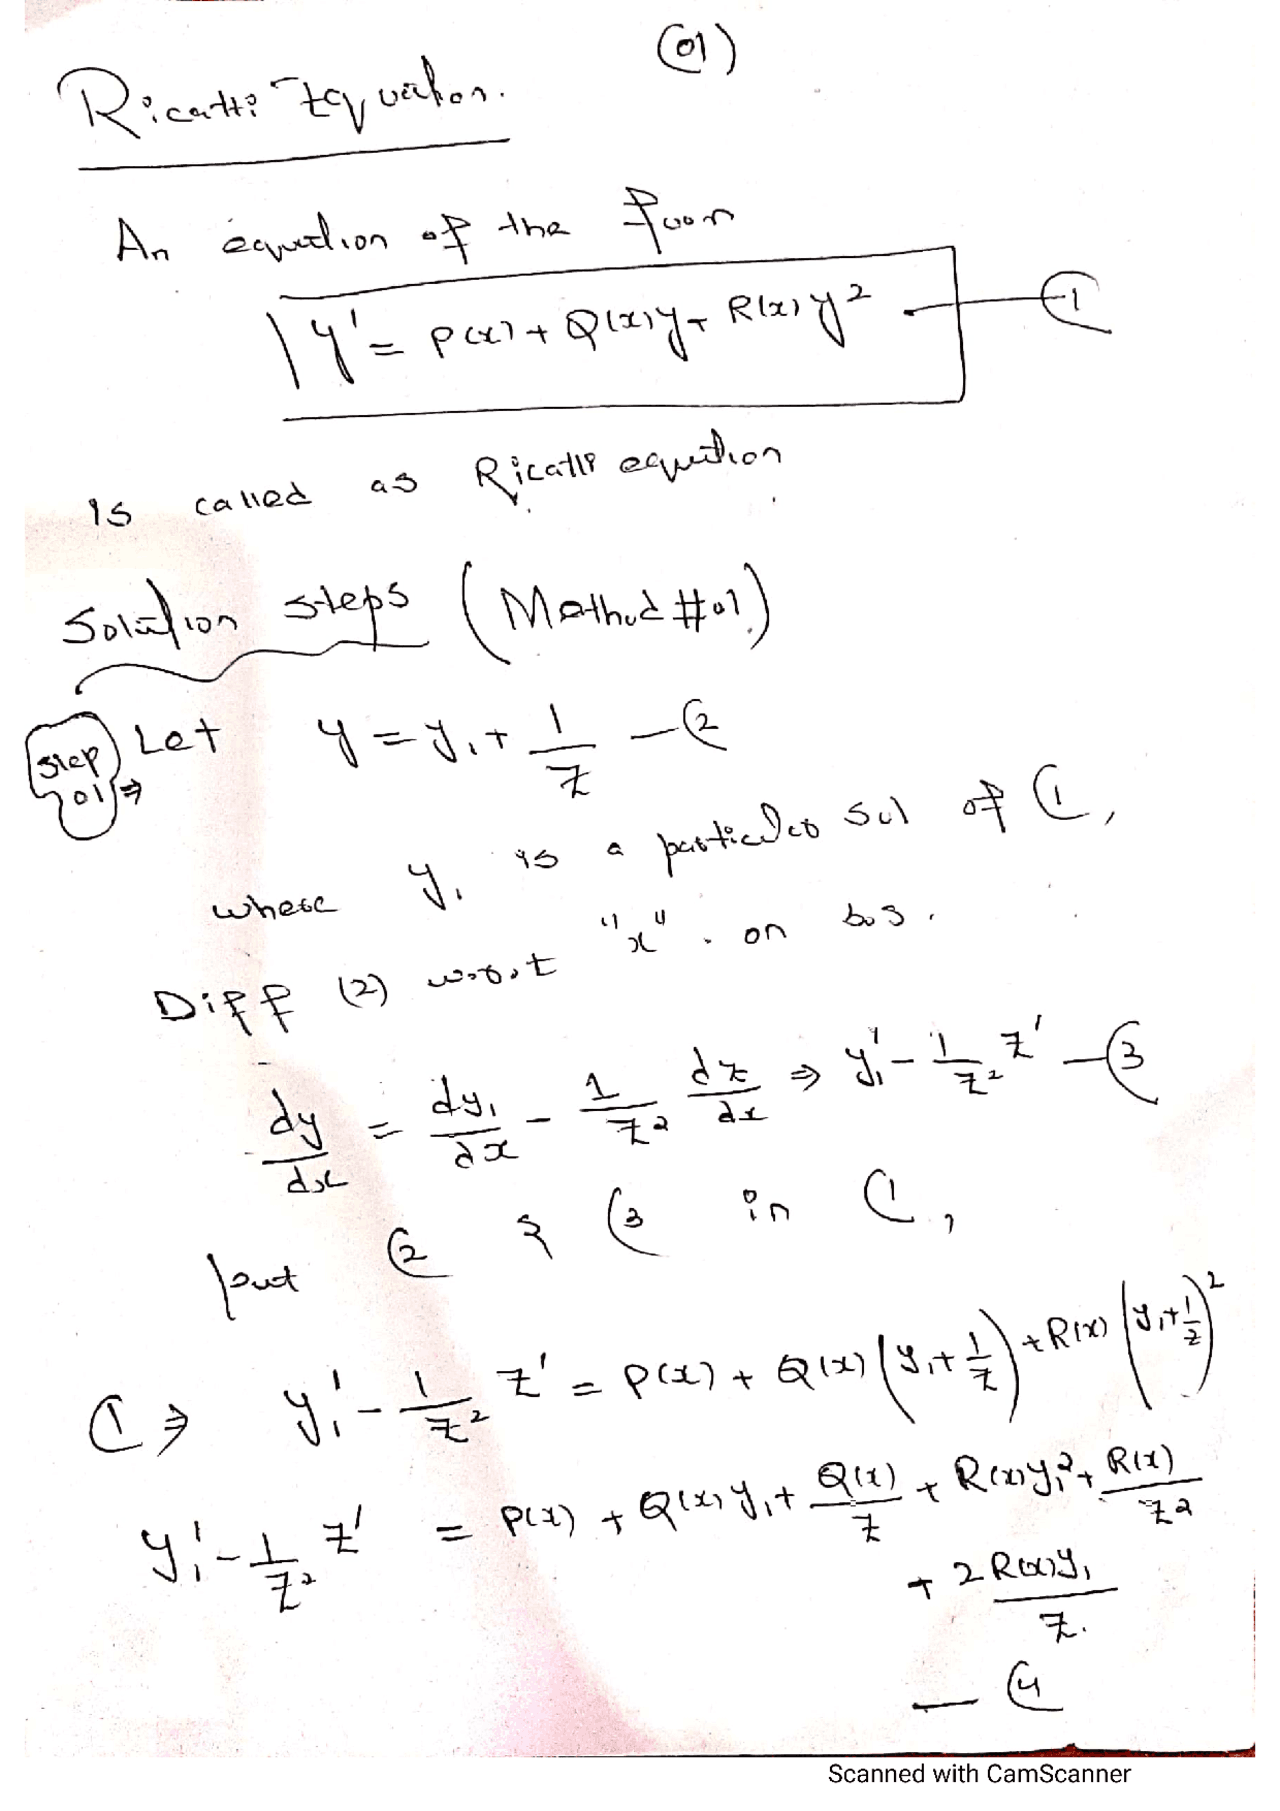 (01)
Ricatti Equation.
An equation of the form
y' = P(x) + Q(x)y + R(x)y² — (1
is called as Ricatti equation
Solution steps (Method #01)
Step 01 ⇒ Let y = y₁ + 1/z — (2
where y₁ is a particular sol of (1,
Diff (2) w.r.t "x" . on b.s.
dy/dx = dy₁/dx - 1/z² dz/dx ⇒ y₁' - 1/z² z' — (3
put (2 & (3 in (1,
(1 ⇒ y₁' - 1/z² z' = P(x) + Q(x) (y₁ + 1/z) + R(x) (y₁ + 1/z)²
y₁' - 1/z² z' = P(x) + Q(x) y₁ + Q(x)/z + R(x)y₁² + R(x)/z²
+ 2R(x)y₁/z.
— (4
Scanned with CamScanner